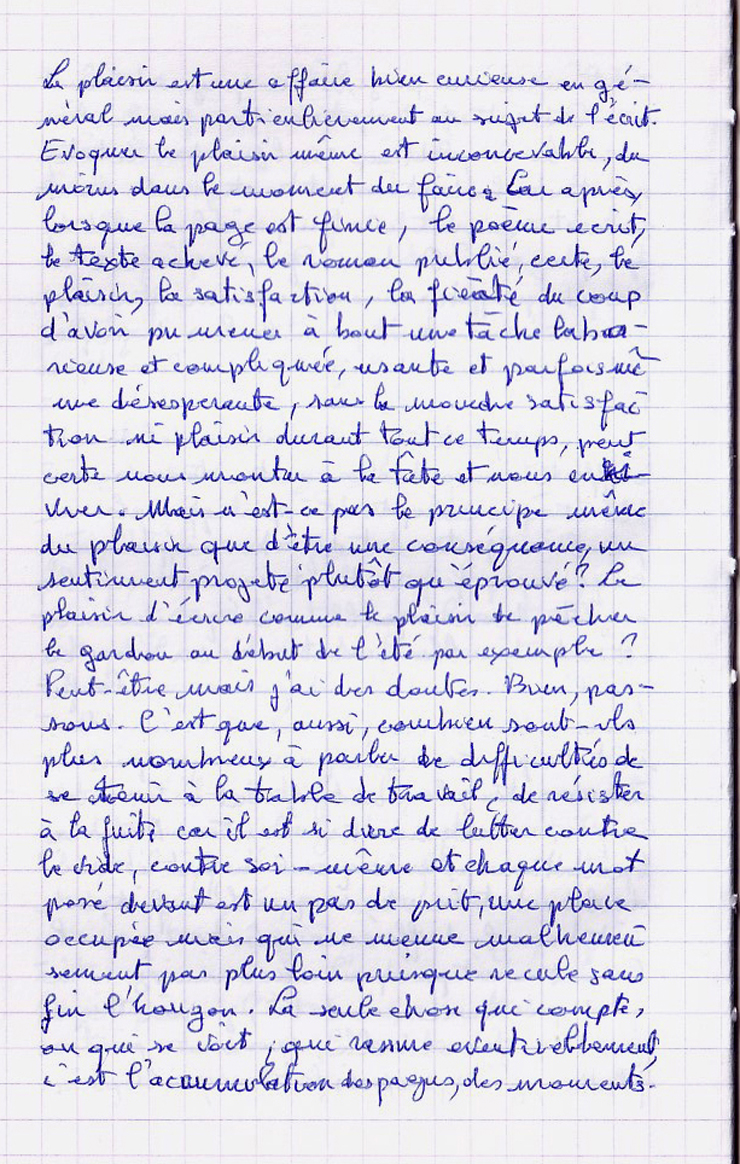 Le plaisir est une affaire bien curieuse en gé-
néral mais particulièrement au sujet de l'écrit.
Evoquer le plaisir même est inconcevable, du
moins dans le moment du faire. Car après,
lorsque la page est finie, le poème ecrit,
le texte achevé, le roman publié, certe, le
plaisir, la satisfaction, la fierté du coup
d'avoir pu mener à bout une tâche labo-
rieuse et compliquée, usante et parfois mê
me désesperante, sans la moindre satisfac
tion ni plaisir durant tout ce temps, peut
certe nous monter à la tête et nous eni-
vrer. Mais n'est-ce pas le principe même
du plaisir que d'être une conséquence, un
sentiment projeté plutôt qu'éprouvé? Le
plaisir d'écrire comme le plaisir de pêcher
le gardon au début de l'été par exemple ?
Peut-être mais j'ai des doutes. Bien, pas-
sons. C'est que, aussi, combien sont-ils
plus nombreux à parler de difficultés de
se tenir à la table de travail, de résister
à la fuite car il est si dure de lutter contre
le vide, contre soi-même et chaque mot
posé devant est un pas de , une place
occupée mais qui ne menne malheureu
sement pas plus loin puisque recule sans
fin l'horizon. La seule chose qui compte,
ou qui se voit, qui rassure eventuellement,
c'est l'accumulation des pages, des moments.